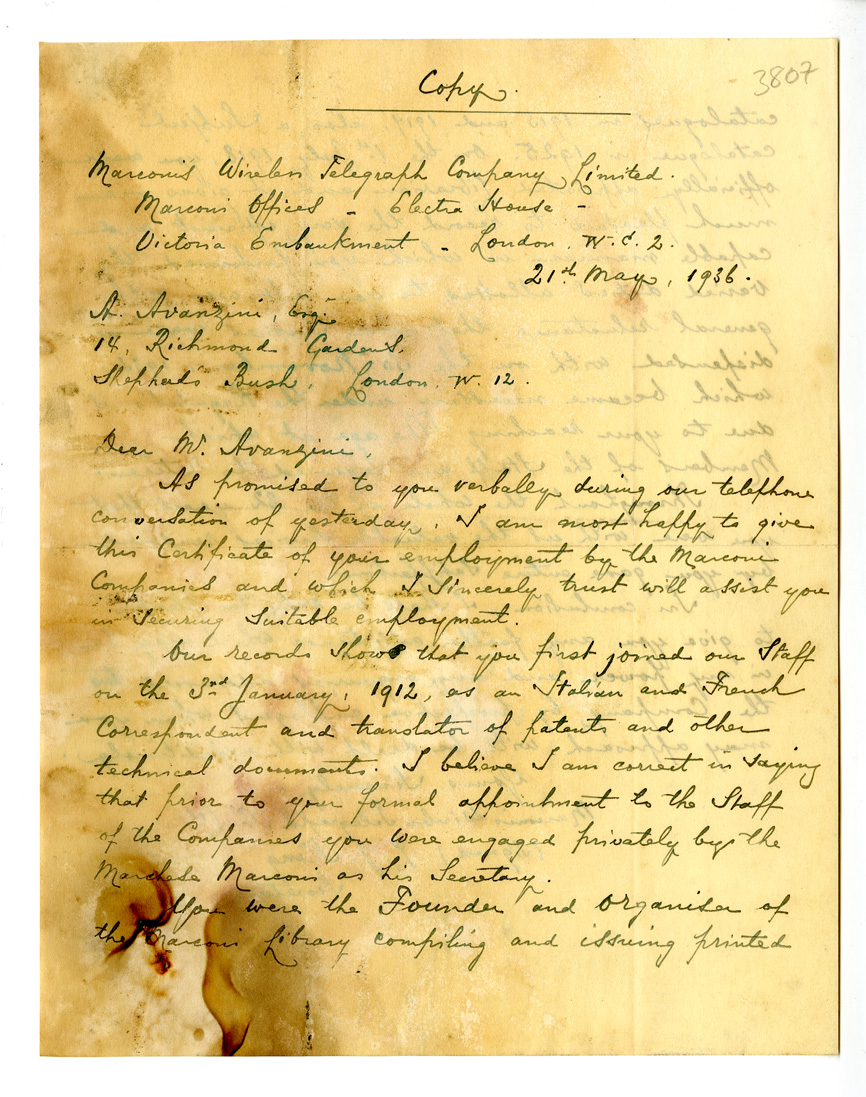 3807
Copy.
Marconi's Wireless Telegraph Company Limited.
Marconi Offices - Electra House -
Victoria Embankment - London. W.C. 2.
21st May, 1936.
A. Avanzini, Esq.
14, Richmond Gardens,
Shepherds Bush, London. W. 12.
Dear Mr. Avanzini,
As promised to you verbally during our telephone
conversation of yesterday, I am most happy to give
this Certificate of your employment by the Marconi
Companies and which I sincerely trust will assist you
in securing suitable employment.
Our records show that you first joined our Staff
on the 3rd January, 1912, as an Italian and French
Correspondent and translator of patents and other
technical documents. I believe I am correct in saying
that prior to your formal appointment to the Staff
of the Companies you were engaged privately by the
Marchese Marconi as his Secretary.
You were the Founder and Organiser of
the Marconi Library compiling and issuing printed